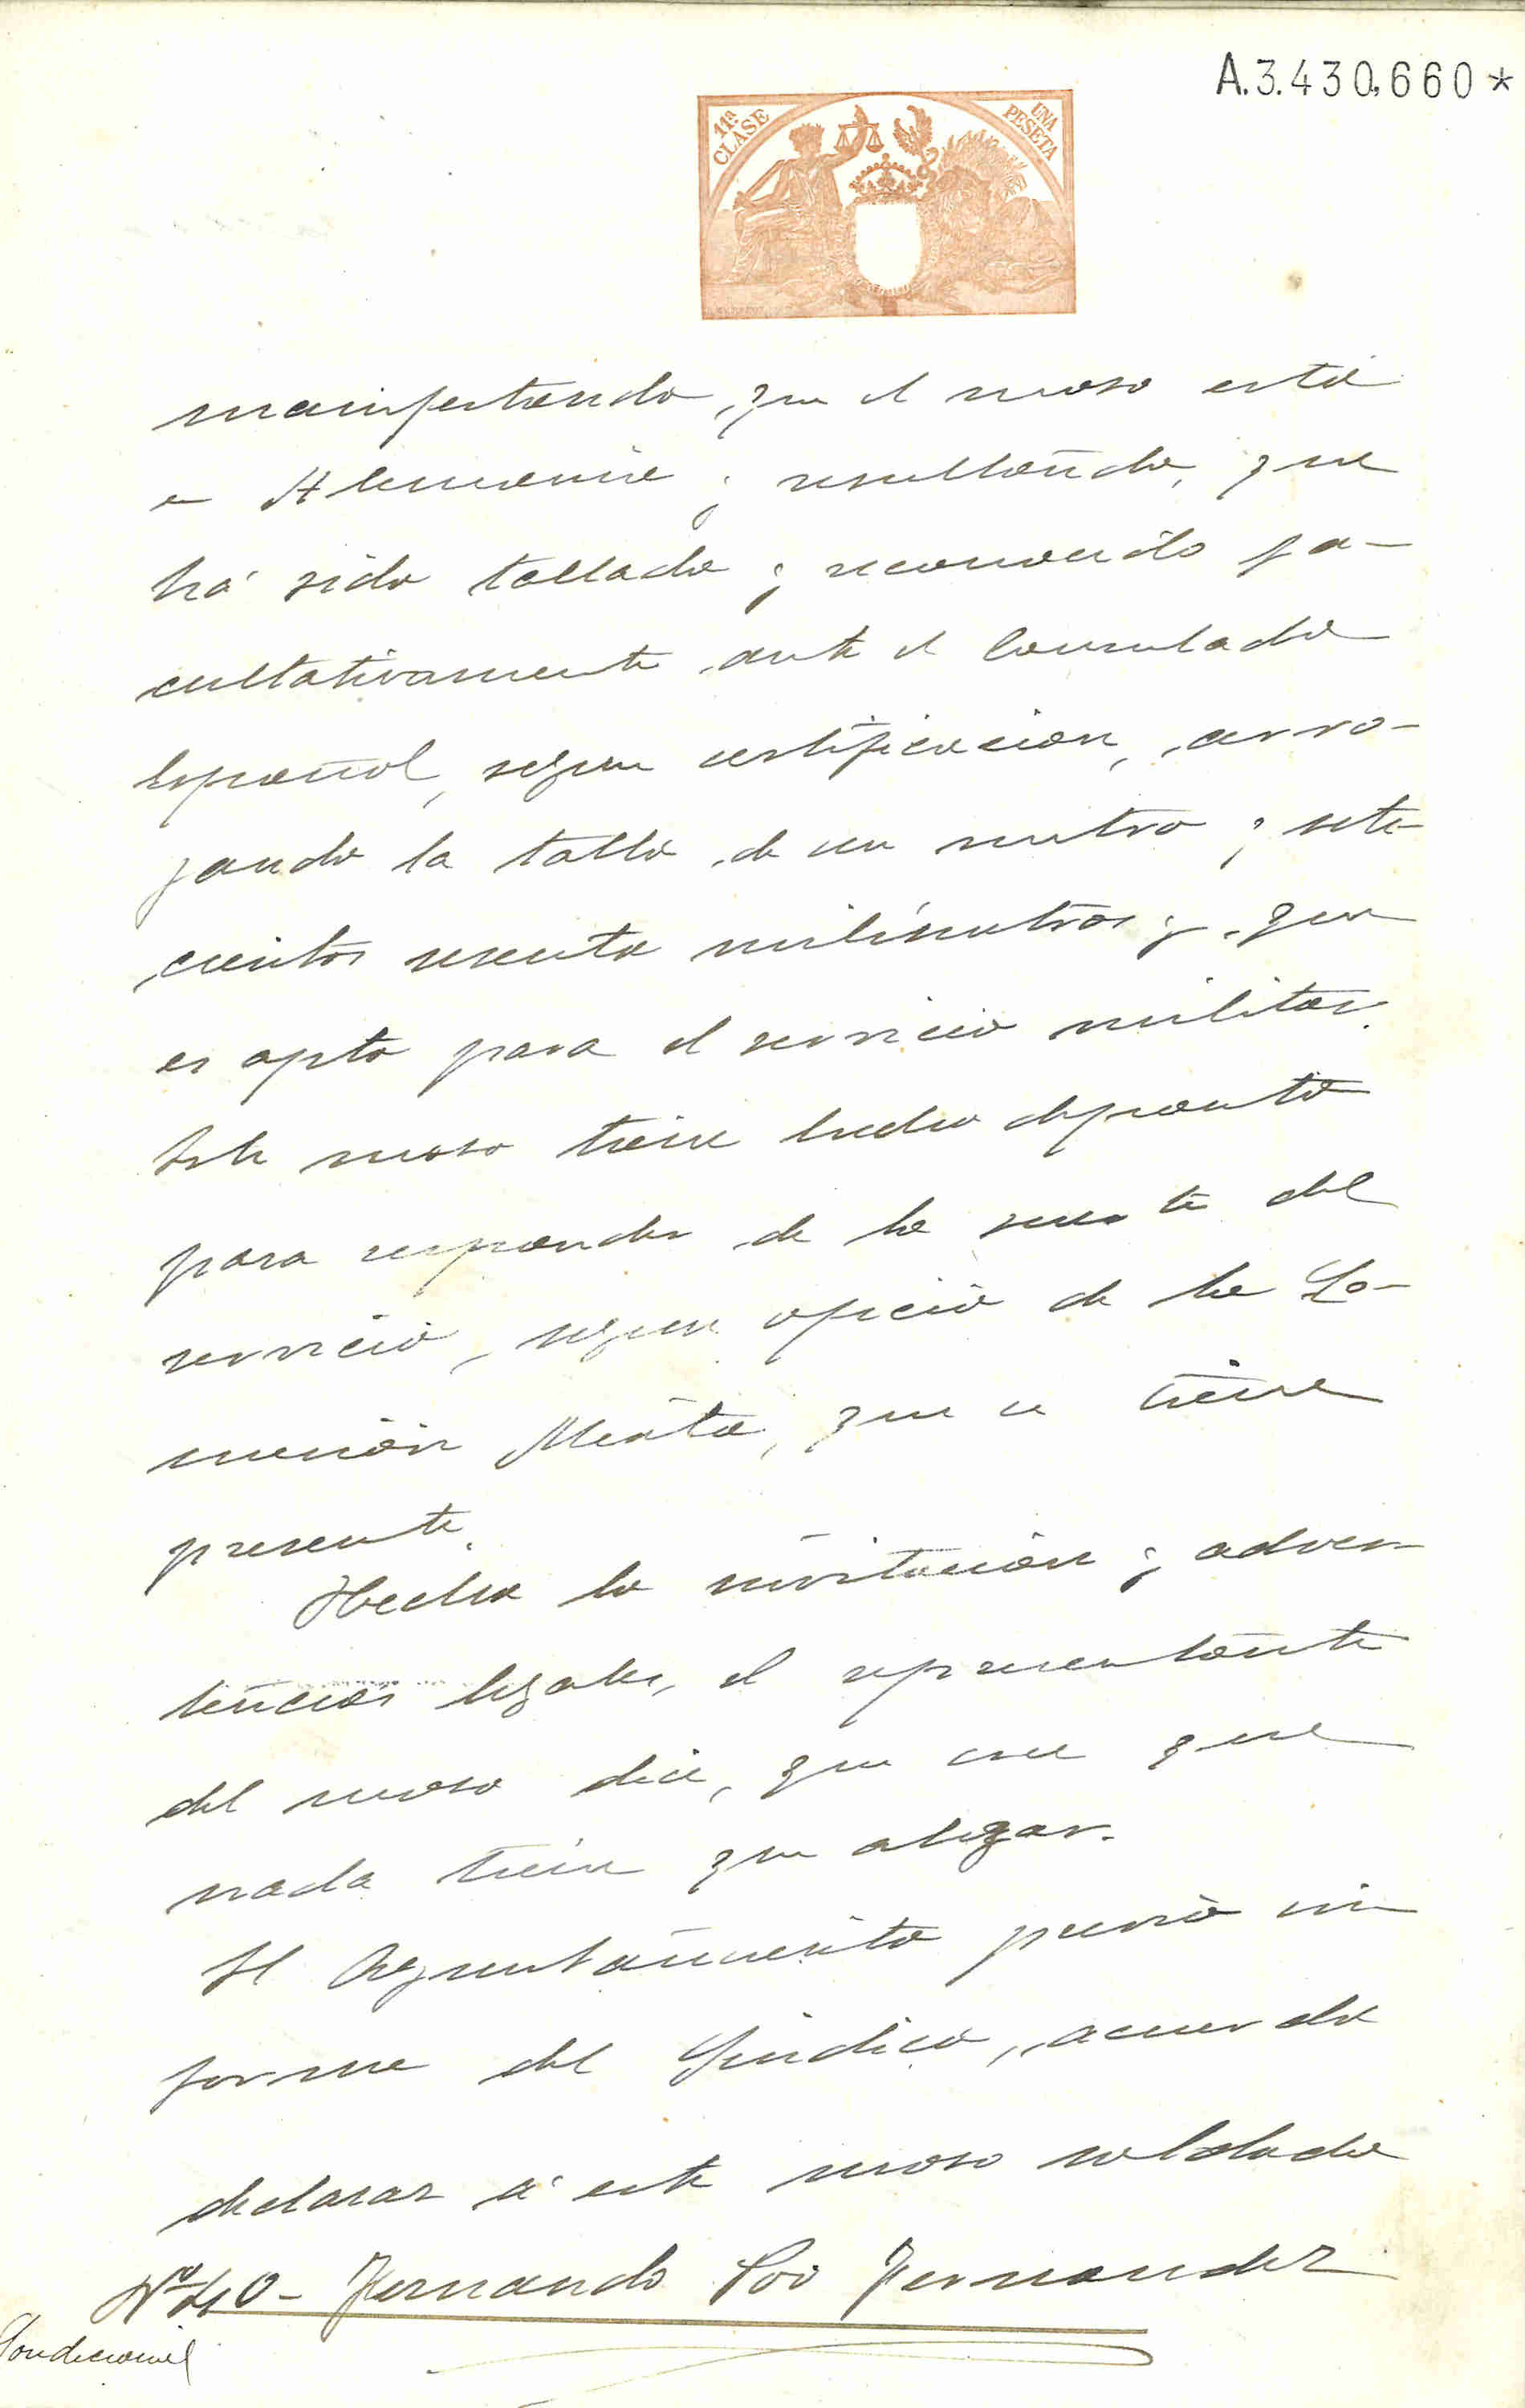 A.3.430.660*
11ª CLASE
UNA PESETA
manifestando, que el moso está
en Alemania y resultando, que
há sido tallado y reconocido fa-
cultativamente ante el Consulado
Español, segun certificacion, arro-
jando la talla de un metro y sete-
cientos sesenta milímetros y que
es apto para el servicio militar.
Este moso tiene hecho deposito
para responder de la suerte del
servicio, segun oficio de la Co-
mision Mixta, que se tiene
presente.
Hecha la invitación y adver-
tencias legales, el representante
del moso dice, que cree que
nada tiene que alegar.
El Ayuntamiento previo in
forme del Sindico, acuerda
declarar á este moso soldado
Nº 40 - Fernando Fernandez
Condicional